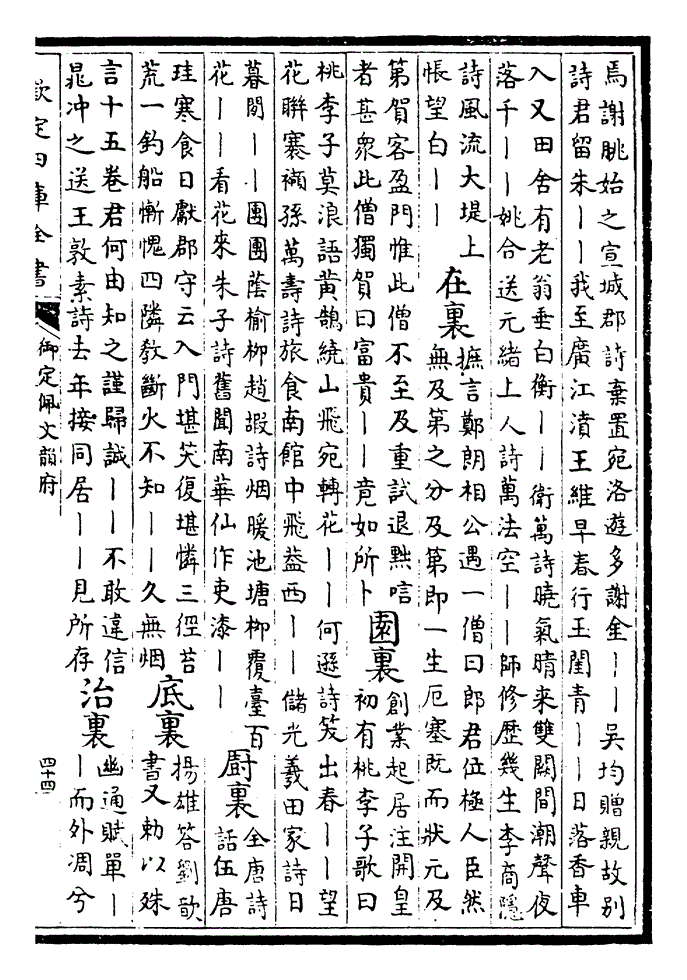 焉謝眺始之宣城郡詩棄置宛洛遊多謝金||吳均贈親故别
詩君留朱||我至廣江濆王維早春行王閨青||日落香車
入又田舍有老翁垂白衡||衛萬詩曉氣晴来雙闕間潮聲夜
落千||姚合送元緒上人詩萬法空||師修歷幾生李商隱
詩風流大堤上
悵望白||
在裏
摭言鄭朗相公遇一僧曰郎君位極人臣然
無及第之分及第即一生厄塞既而狀元及
第賀客盈門惟此僧不至及重試退黜唁
者甚衆此僧獨賀曰富貴||竟如所卜
園裏
創業起居注開皇
初有桃李子歌曰
桃李子莫浪語黄鵠繞山飛宛轉花||何遜詩笑出春||望
花聨褰襭孫萬壽詩旅食南館中飛葢西||儲光羲田家詩日
暮閒||團團蔭榆柳趙嘏詩烟暖池塘柳覆臺百
花||看花來朱子詩舊聞南華仙作吏漆||
厨裏
全唐詩
話伍唐
珪寒食日獻郡守云入門堪笑復堪憐三徑苔
荒一釣船慚愧四隣教斷火不知||久無烟
底裏
揚雄答劉歆
書又勑以殊
言十五卷君何由知之謹歸誠||不敢違信
晁冲之送王敦素詩去年接同居||見所存
治裏
幽通賦單|
|而外凋兮
欽定四庫全書
御定佩文韻府
四十四